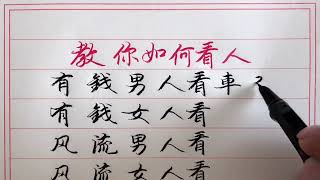 教你如何看人
有錢男人看車
有錢女人看
风流男人看
风流女人看